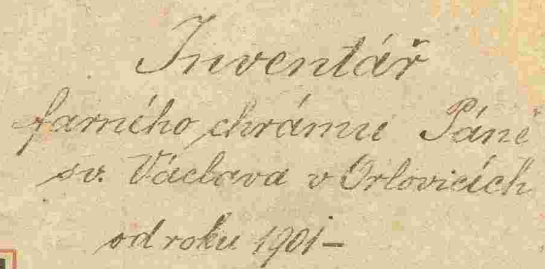 Inventář
farního chrámu Páně
sv. Václava v Orlovicích
od roku 1901 –